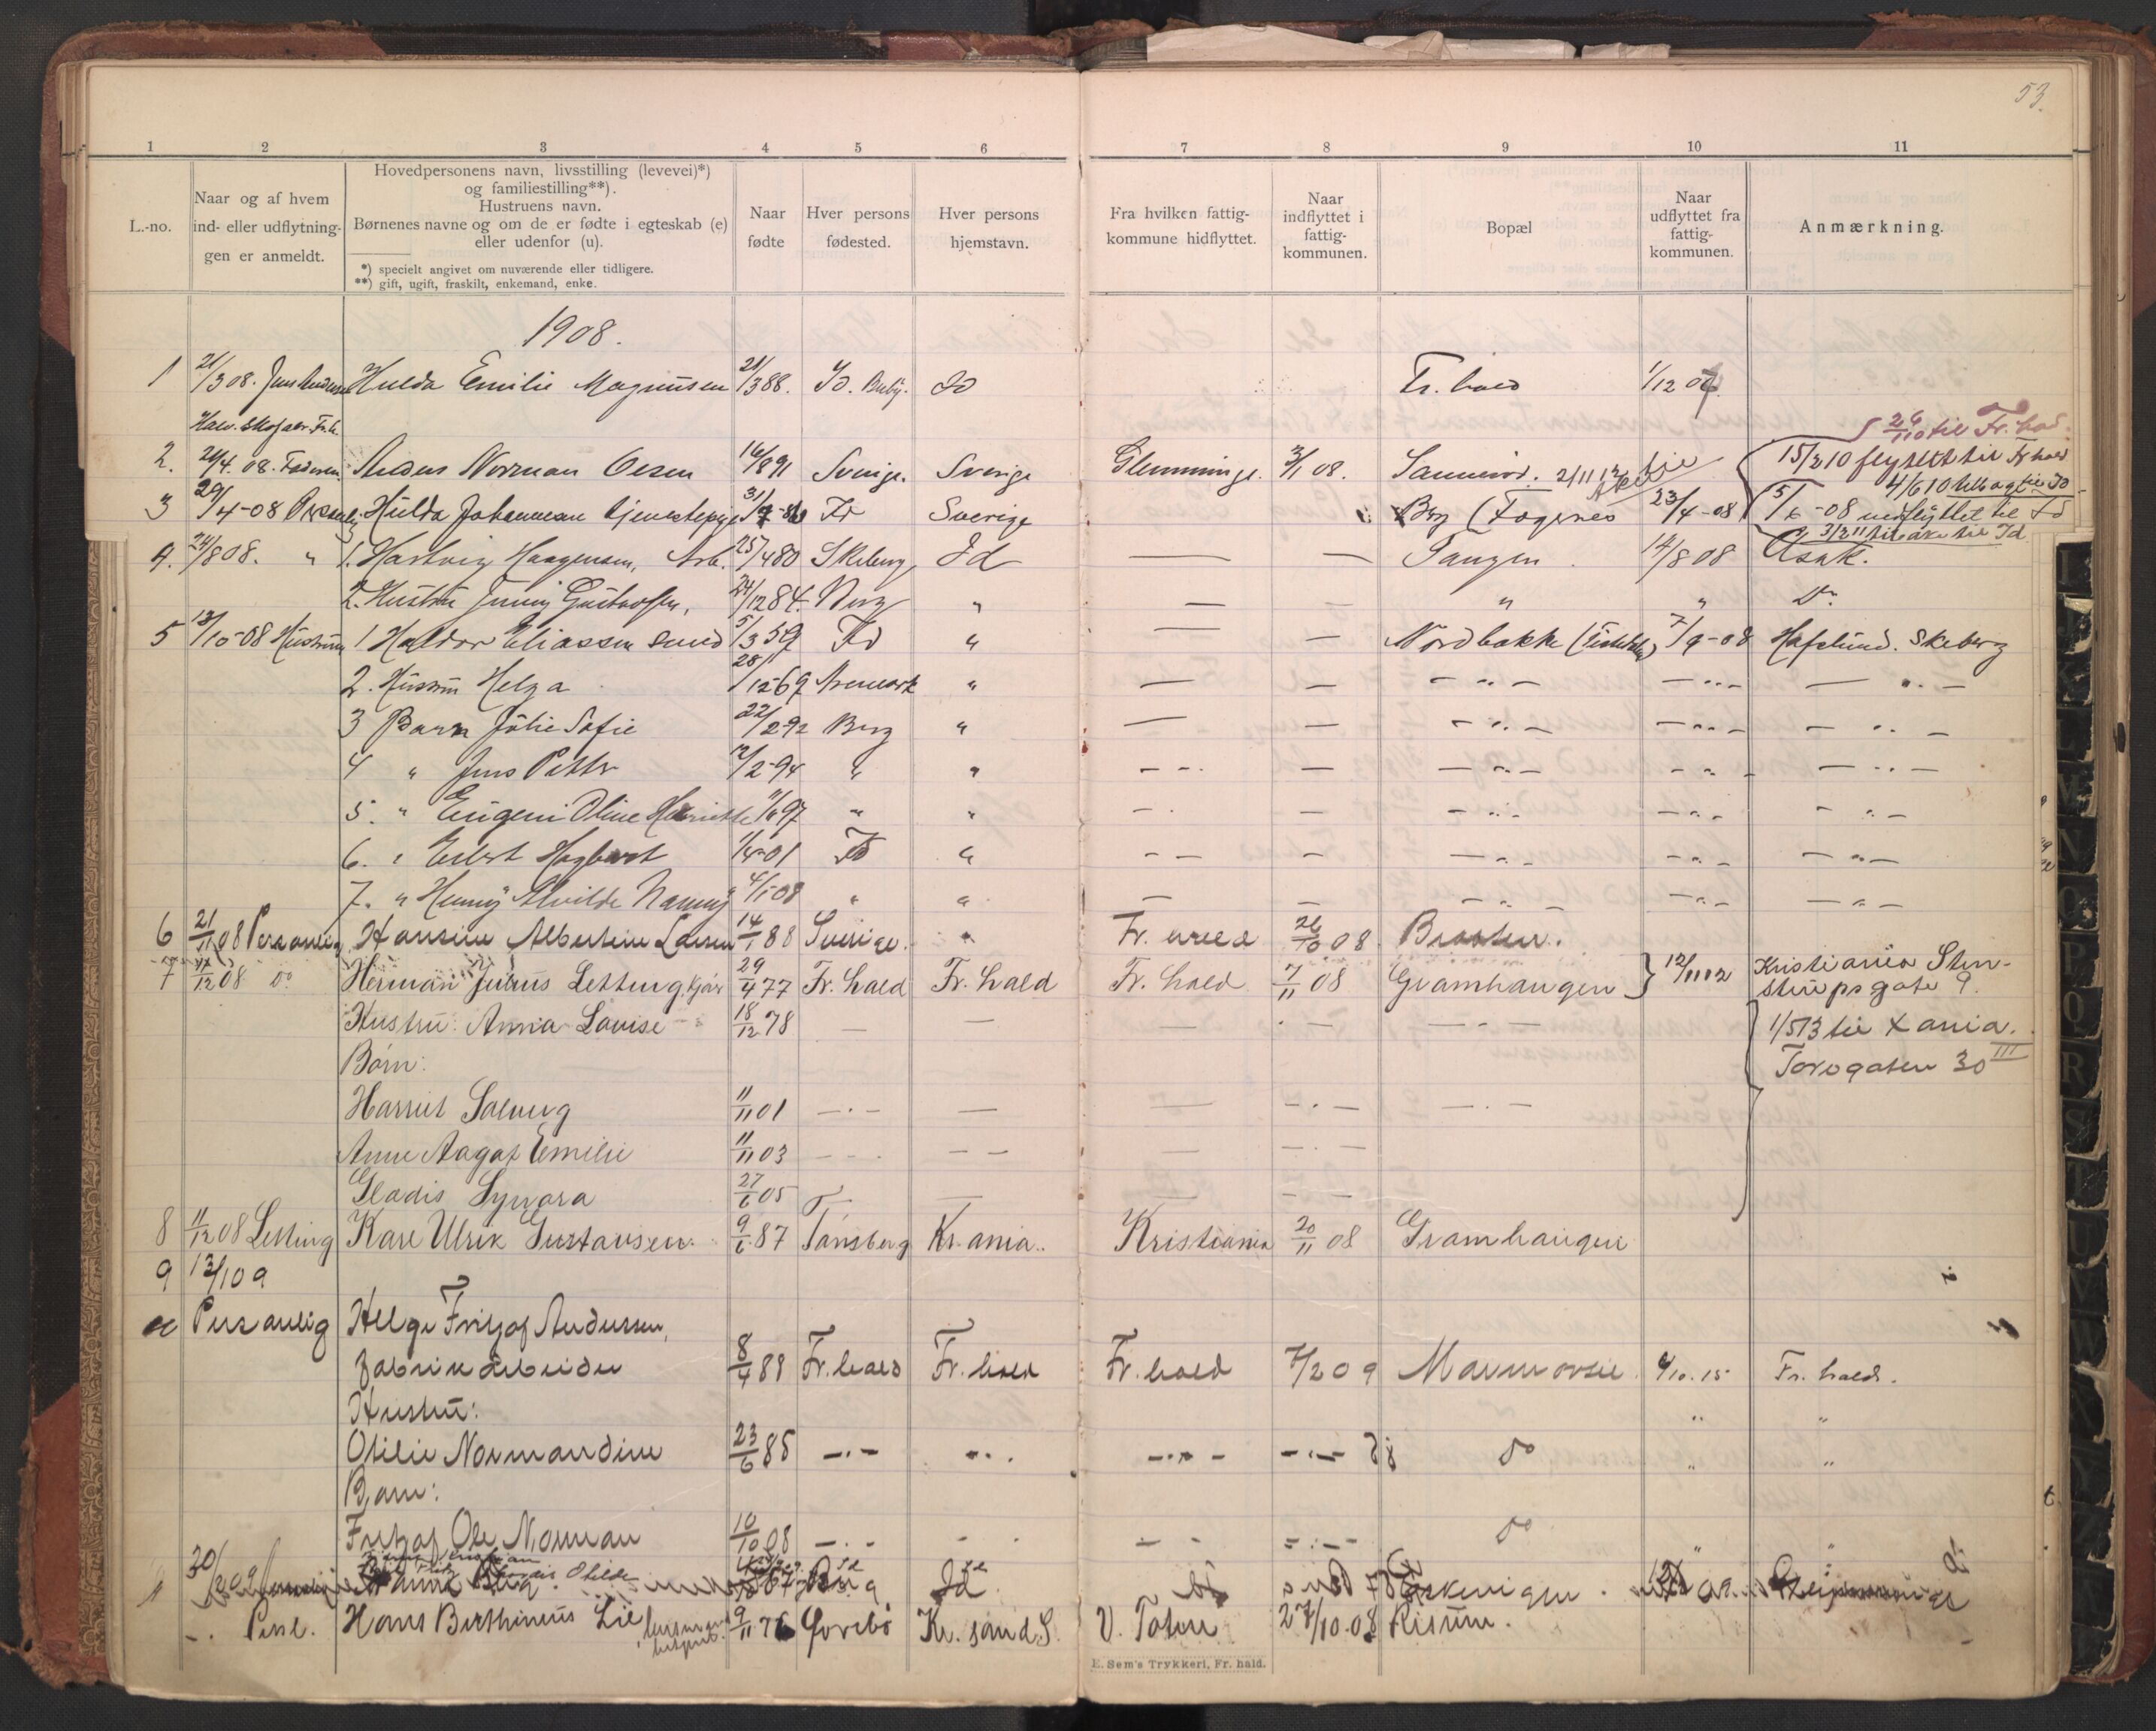 53.
1 2 3 4 5 6 7 8 9 10 11
L.-no.
Naar og af hvem
ind- eller udflytnin-
gen er anmeldt.
Hovedpersonens navn, livsstilling (levevei)*)
og familiestilling**).
Hustruens navn.
Børnenes navne og om de er fødte i egteskab (e)
eller udenfor (u).
*) specielt angivet om nuværende eller tidligere.
**) gift, ugift, fraskilt, enkemand, enke.
Naar
fødte
Hver persons
fødested.
Hver persons
hjemstavn.
Fra hvilken fattig-
kommune hidflyttet.
Naar
indflyttet i
fattig-
kommunen.
Bopæl
Naar
udflyttet fra
fattig-
kommunen.
Anmærkning.
1908.
1 21/3 08. Hulda Emilie Magnussen 21/3 88. Id Fr. hald 1/12 07
26/10 til Fr. hald
2. 29/4. 08. Anders Norman Olsen 16/8 91 Sverige. Sverige Glemminge. 3/1 08. 15/2 10 flyttet til Fr hald
4/6 10 tilbage til Id
3 29/4-08 Hulda Johannesen tjenestepige Id Sverige Berg (Fagernes 23/4-08 -08 indflyttet til Id
3/2 11 tilbake til Id
4. 24/8 08. " 1. Hartvig Haagensen, Arb. 25/4 80 Skeberg Id — — Tangen 14/8 08 Asak.
2. Hustru Jenny Gustavsen, 24/12 84. Berg " — — " " Do
5 13/10-08 Hustruen 1 Haldor Eliassen Lund 5/3 59 Id " — — Nordbakke 7/9-08 Hafslund. Skeberg
2. Hustru Helga 28/12-69 Aremark " — — — " — — " — — " —
3 Barn Julie Sofie 22/2 92 Berg " — — — " — — " — — " —
4 " Jens Petter 12/2-94 " " — — — " — — " — — " —
5. " Eugeni Oline Henriette 97 " " — — " — — " — — " —
6. " Hagbart 01 Id " — — — " — — " — — " —
7. " Henny Alvilde Nanny 4/1 08 " " — — — " — — " — — " —
6 21/11 08 Personlig Hansine Albertine Larsen 14/1 88 Sverige. " Fr. hald 26/10 08. Braaten.
7 11/12 08 Do Herman Julius Letting 29/4 77 Fr. hald Fr. hald Fr. hald 7/11 08 Gramhaugen 12/11 12 Kristiania Sten-
strupsgate 9.
Hustru: Anna Lovise 18/12 78 — — — — —
1/5 13 til Xania.
Børn:
30 III
Harriet Solveig 11/11 01 — — — — —
Anne Aagot Emilie 11/11 03 — — — —
Gladis Synøra 27/6 05 — — —
8 11/12 08 Letting Karl Ulrik Gustavsen. 9/6 87 Tønsberg Kr. ania. Kristiania 20/11 08 Gramhaugen
9 13/1 09
Personlig Helge Fritjof Andersen,
fabrikarbeider 8/4 88 Fr. hald Fr. hald Fr. hald 7/2 09 6/10. 15 Fr. hald.
Hustru: " "
Otilie Normandine 23/6 85 — — — — do " "
Barn:
Fritjof Ole Norman 10/10 08 — — — — do " "
30/ 09 Id
Persl. Hans Berthinius Lie 9/11 76 Øvrebø Kr. sand S. V. Toten 27/10-08 Risum.
E. Sem's Trykkeri, Fr. hald.